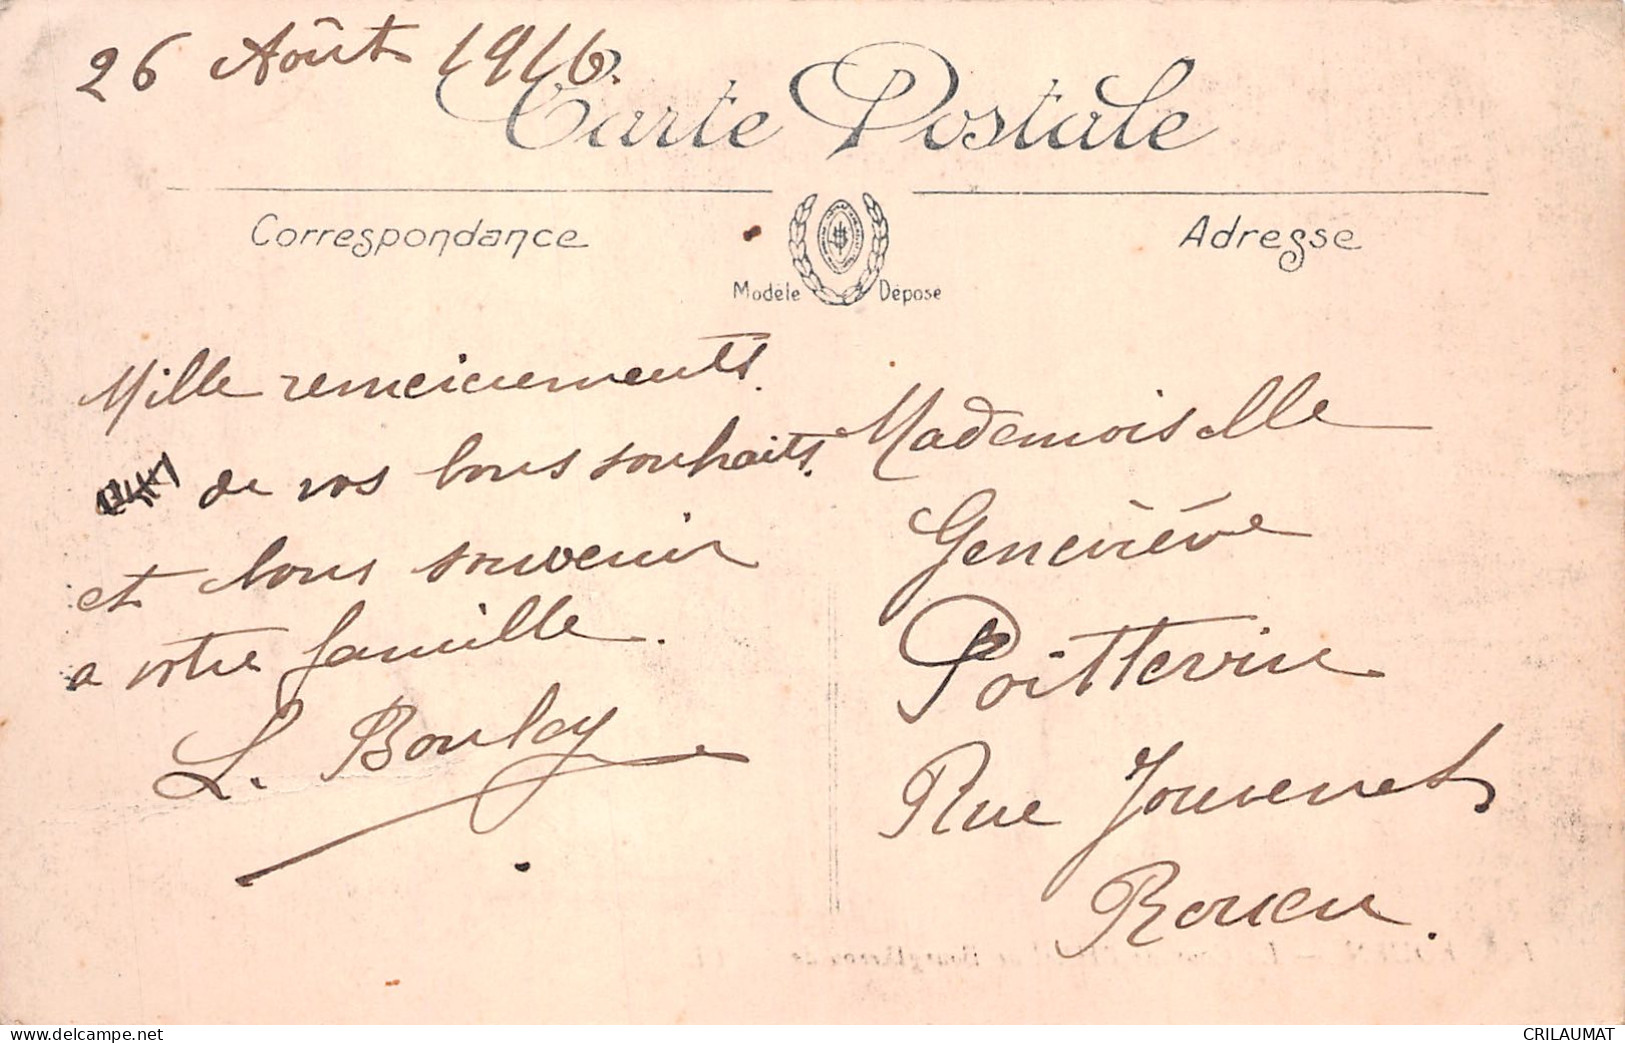 26 Août 1916.
Carte Postale
Correspondance
Adresse
Modèle Déposé
Mille remerciements
de vos bons souhaits.
et bons souvenir
a votre famille.
L. Boulay
Mademoiselle
Geneviève
Poittevin
Rue Jouvenet
Rouen.
www.delcampe.net
CRILAUMAT